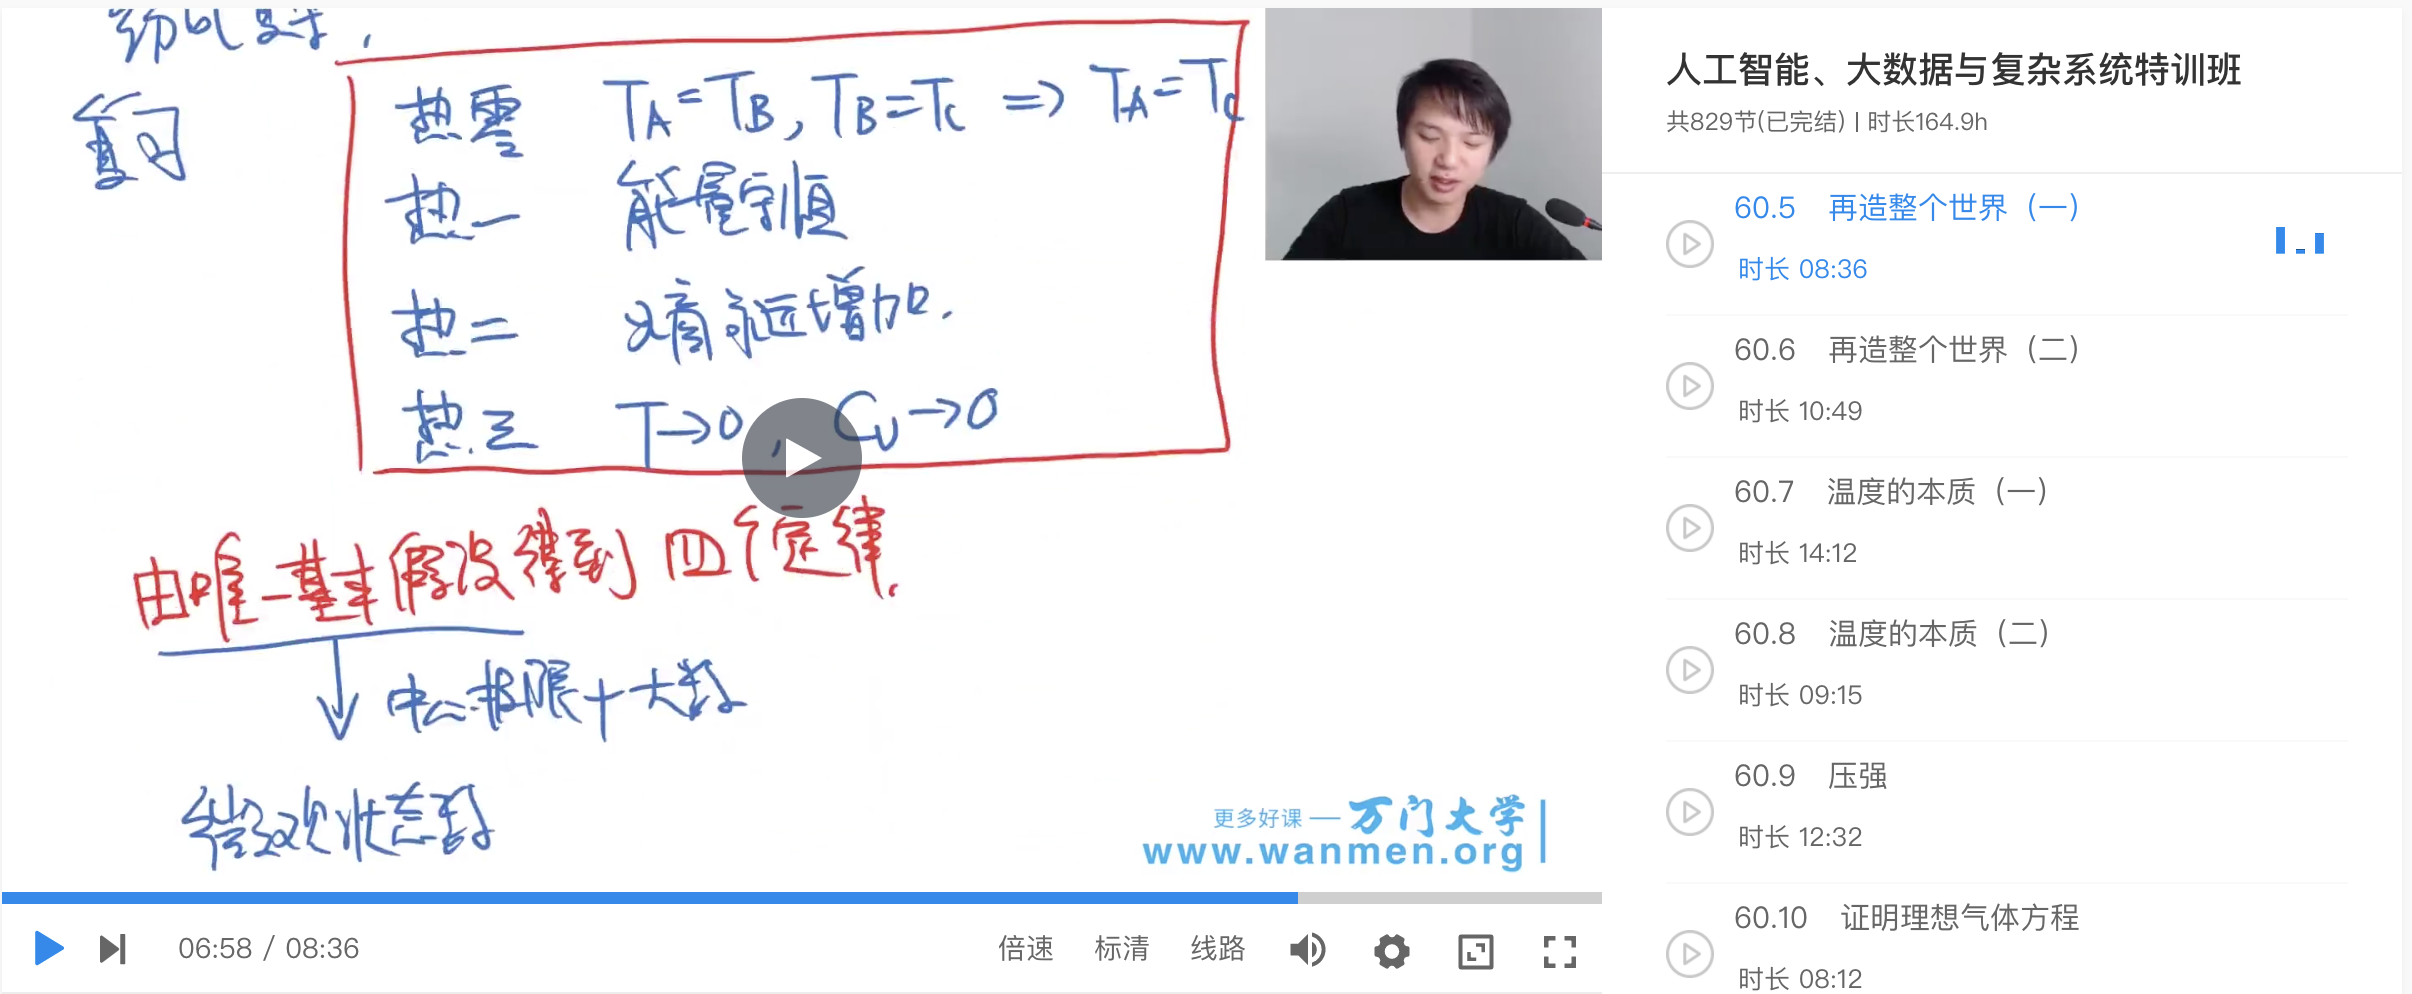 复习
热零 TA=TB, TB=TC => TA=TC
热一 能量守恒
热二 熵永远增加.
热三 T→0, CV→0
由唯一基本假设得到四个定律.
中心极限+大数
微观状态数
更多好课 — 万门大学
www.wanmen.org
06:58 / 08:36
倍速 标清 线路
人工智能、大数据与复杂系统特训班
共829节(已完结) | 时长164.9h
60.5 再造整个世界（一）
时长 08:36
60.6 再造整个世界（二）
时长 10:49
60.7 温度的本质（一）
时长 14:12
60.8 温度的本质（二）
时长 09:15
60.9 压强
时长 12:32
60.10 证明理想气体方程
时长 08:12